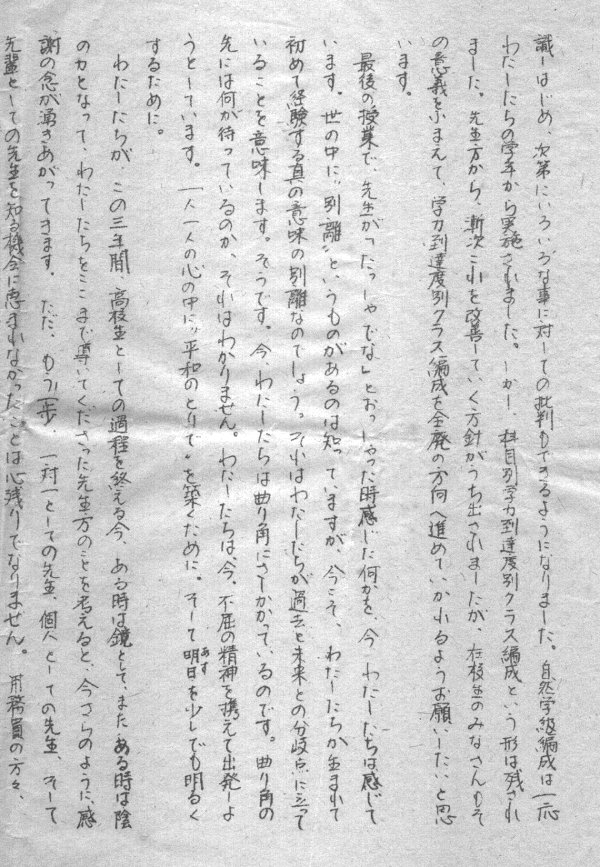 識しはじめ、次第にいろいろな事に対しての批判もできるようになりました。自然学級編成は一応
わたしたちの学年から実施されました。しかし、科目別学力到達度別クラス編成という形は残され
ました。先生方から、漸次これを改善していく方針がうち出されましたが、在校生のみなさんもそ
の意義をふまえて、学力到達度別クラス編成を全廃の方向へ進めていかれるようお願いしたいと思
います。
最後の授業で、先生が「たっしゃでな」とおっしゃった時感じた何かを、今 わたしたちは感じて
います。世の中に〝別離〟というものがあるのは知っていますが、今こそ、わたしたちが生まれて
初めて経験する真の意味の別離なのでしょう。それはわたしたちが過去と未来との分岐点に立って
いることを意味します。そうです。今、わたしたちは曲り角にさしかかっているのです。曲り角の
先には何が待っているのか、それはわかりません。わたしたちは、今、不屈の精神を携えて出発しよ
うとしています。一人一人の心の中に〝平和のとりで〟を築くために。そして明日を少しでも明るく
あす
するために。
わたしたちが、この三年間 高校生としての過程を終える今、ある時は鏡として、また ある時は陰
の力となって、わたしたちをここまで導いてくださった先生方のことを考えると、今さらのように、感
謝の念が湧きあがってきます。ただ、もう一歩 一対一としての先生、個人としての先生、そして
先輩としての先生を知る機会に恵まれなかったことは心残りでなりません。用務員の方々、